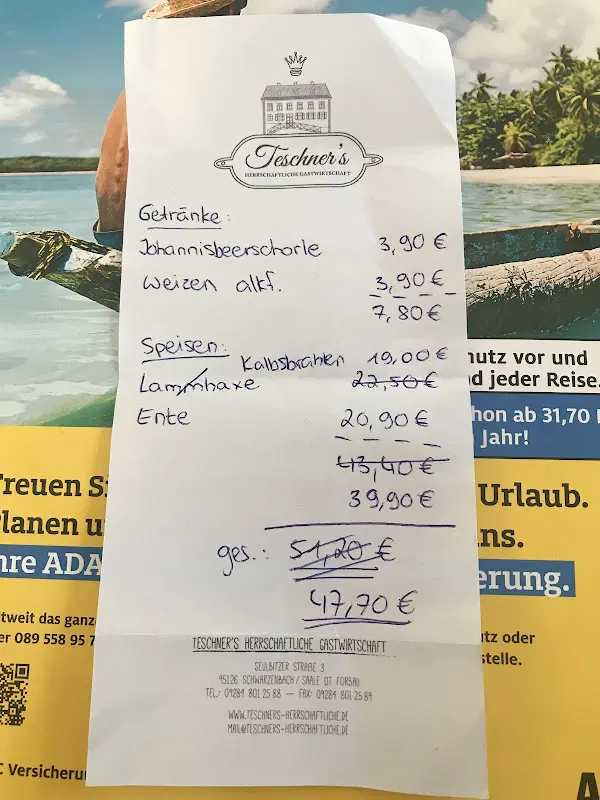 Teschner's
HERRSCHAFTLICHE GASTWIRTSCHAFT
Getränke:
Johannisbeerschorle 3,90 €
Weizen alkf. 3,90 €
7,80 €
Speisen:
Kalbsbraten 19,00 €
Lammhaxe 22,50 €
Ente 20,90 €
43,40 €
39,90 €
ges.: 51,20 €
47,70 €
TESCHNER'S HERRSCHAFTLICHE GASTWIRTSCHAFT
SEULBITZER STRAßE 3
95126 SCHWARZENBACH / SAALE OT FÖRBAU
TEL.: 09284 801 25 88 — FAX: 09284 801 25 89
WWW.TESCHNERS-HERRSCHAFTLICHE.DE
MAIL@TESCHNERS-HERRSCHAFTLICHE.DE
hutz vor und
d jeder Reise.
hon ab 31,70
Jahr!
reuen
lanen u
hre ADA
Urlaub.
ns.
erung.
tweit das ganz
er 089 558 95 7
utz oder
stelle.
C Versicheru
A